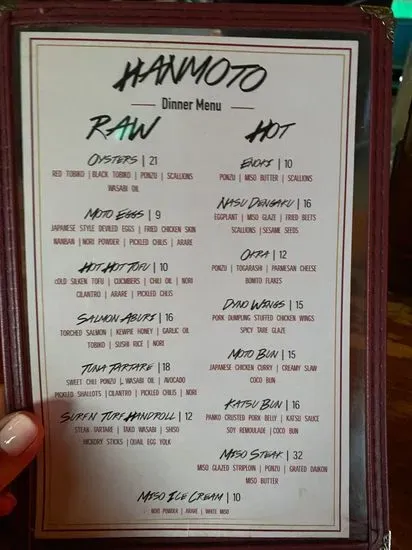 HANMOTO
Dinner Menu
RAW
OYSTERS | 21
RED TOBIKO | BLACK TOBIKO | PONZU | SCALLIONS
WASABI OIL
MOTO EGGS | 9
JAPANESE STYLE DEVILED EGGS | FRIED CHICKEN SKIN
NANBAN | NORI POWDER | PICKLED CHILIS | ARARE
HOT HOT TOFU | 10
COLD SILKEN TOFU | CUCUMBERS | CHILI OIL | NORI
CILANTRO | ARARE | PICKLED CHILIS
SALMON ABURI | 16
TORCHED SALMON | KEWPIE HONEY | GARLIC OIL
TOBIKO | SUSHI RICE | NORI
TUNA TARTARE | 18
SWEET CHILI PONZU | WASABI OIL | AVOCADO
PICKLED SHALLOTS | CILANTRO | PICKLED CHILIS | NORI
SURF N TURF HANDROLL | 12
STEAK TARTARE | TAKO WASABI | SHISO
HICKORY STICKS | QUAIL EGG YOLK
HOT
ENOKI | 10
PONZU | MISO BUTTER | SCALLIONS
NASU DENGAKU | 16
EGGPLANT | MISO GLAZE | FRIED BEETS
SCALLIONS | SESAME SEEDS
OKRA | 12
PONZU | TOGARASHI | PARMESAN CHEESE
BONITO FLAKES
DYNO WINGS | 15
PORK DUMPLING STUFFED CHICKEN WINGS
SPICY TARE GLAZE
MOTO BUN | 15
JAPANESE CHICKEN CURRY | CREAMY SLAW
COCO BUN
KATSU BUN | 16
PANKO CRUSTED PORK BELLY | KATSU SAUCE
SOY REMOULADE | COCO BUN
MISO STEAK | 32
MISO GLAZED STRIPLOIN | PONZU | GRATED DAIKON
MISO BUTTER
MISO ICE CREAM | 10
NORI POWDER | ARARE | WHITE MISO